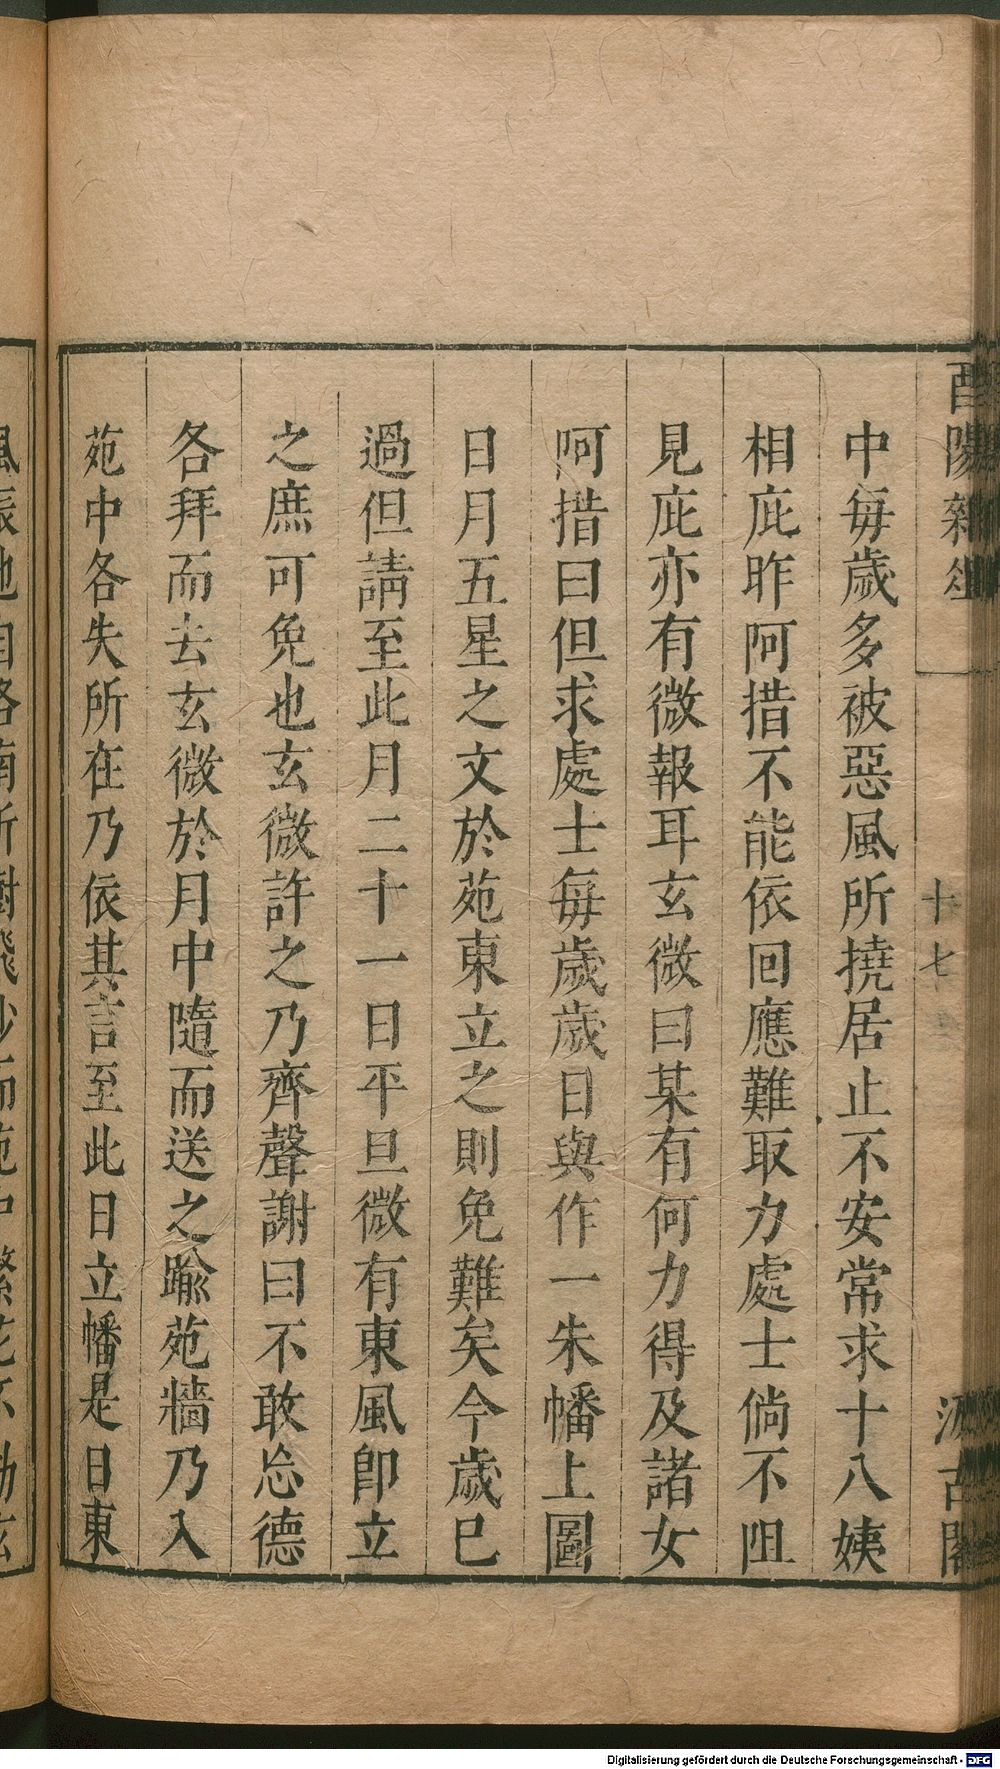 酉陽雜俎
十七
汲古閣
中每歲多被惡風所撓居止不安常求十八姨
相庇昨阿措不能依回應難取力處士倘不阻
見庇亦有微報耳玄微曰某有何力得及諸女
阿措曰但求處士每歲歲日與作一朱幡上圖
日月五星之文於苑東立之則免難矣今歲巳
過但請至此月二十一日平旦微有東風卽立
之庶可免也玄微許之乃齊聲謝曰不敢忘德
各拜而去玄微於月中隨而送之踰苑牆乃入
苑中各失所在乃依其言至此日立幡是日東
風振地自洛南折樹飛沙而苑中繁花不動玄
Digitalisierung gefördert durch die Deutsche Forschungsgemeinschaft - DFG